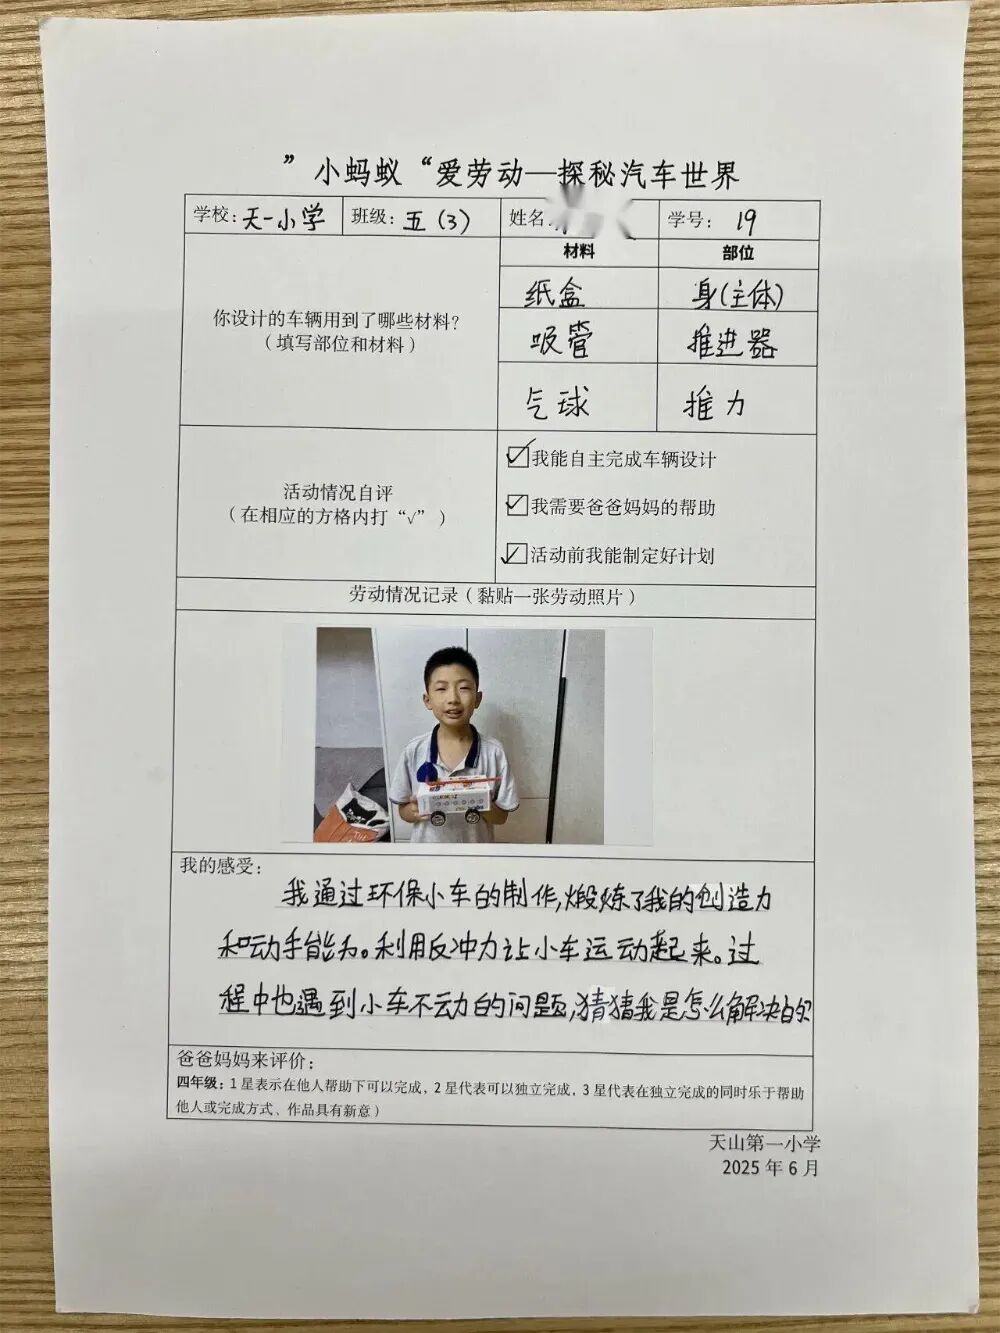 ”小蚂蚁“爱劳动—探秘汽车世界
学校：天一小学 班级：五（3） 姓名： 学号： 19
材料 部位
你设计的车辆用到了哪些材料？
（填写部位和材料）
纸盒 身（主体）
吸管 推进器
气球 推力
活动情况自评
（在相应的方格内打“√”）
☑我能自主完成车辆设计
☑我需要爸爸妈妈的帮助
☑活动前我能制定好计划
劳动情况记录（黏贴一张劳动照片）
我的感受：
我通过环保小车的制作,煅炼了我的创造力
和动手能力。利用反冲力让小车运动起来。过
程中也遇到小车不动的问题,猜猜我是怎么解决的
爸爸妈妈来评价：
四年级：1星表示在他人帮助下可以完成，2星代表可以独立完成，3星代表在独立完成的同时乐于帮助
他人或完成方式、作品具有新意）
天山第一小学
2025年6月